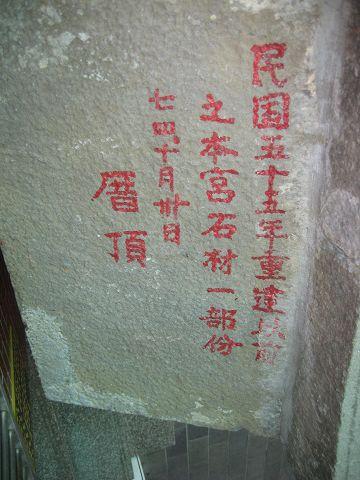 民国五十五年重建以前
之本宮石材一部份
七四、十月卅日
厝頂